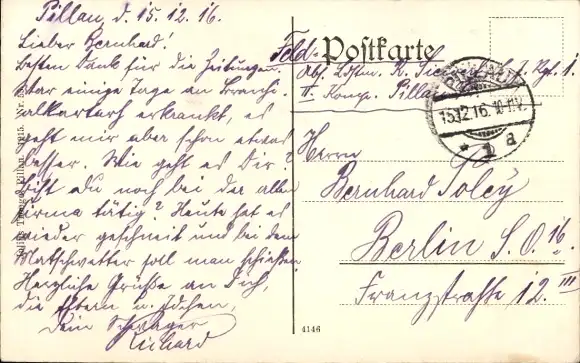 Pillau, d. 15.12.16.
Lieber Bernhard!
Besten Dank für die Zeitungen.
War einige Tage an Bronchi-
alkatarh erkrankt, es
geht mir aber schon etwas
besser. Wie geht es Dir?
Bist du noch bei der alten
Firma tätig? Heute hat es
wieder geschneit und bei dem
Matschwetter soll man schießen
Herzliche Grüße an Dich,
die Eltern u.
Dein Schwager
Richard
Feld-Postkarte
Abs. Ldstm. R.
II. Komp. Pillau
PILLAU
15.12.16. 10-11V.
* a
Herrn
Bernhard Foley
Berlin S.O. 16.
Franzstraße 12. III
4146